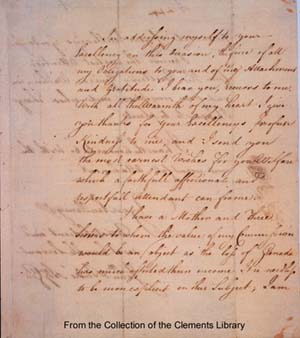 In addressing myself to your
Excellency on this Occasion, the Sense of all
my Obligations to you and of my Attachment
and Gratitude I bear you, recurs to me.
With all the Warmth of my heart I give
you thanks for your Excellency's profuse
Kindness to me, and I send you
the most earnest Wishes for your Welfare
which a faithfull affectionate and
respectfull Attendant can frame.
I have a Mother and Three
Sisters to whom the value of my Commission
would be an object as the loss of Grenada
has much affected their income. It is needless
to be more explicit on this Subject; I am
From the Collection of the Clements Library